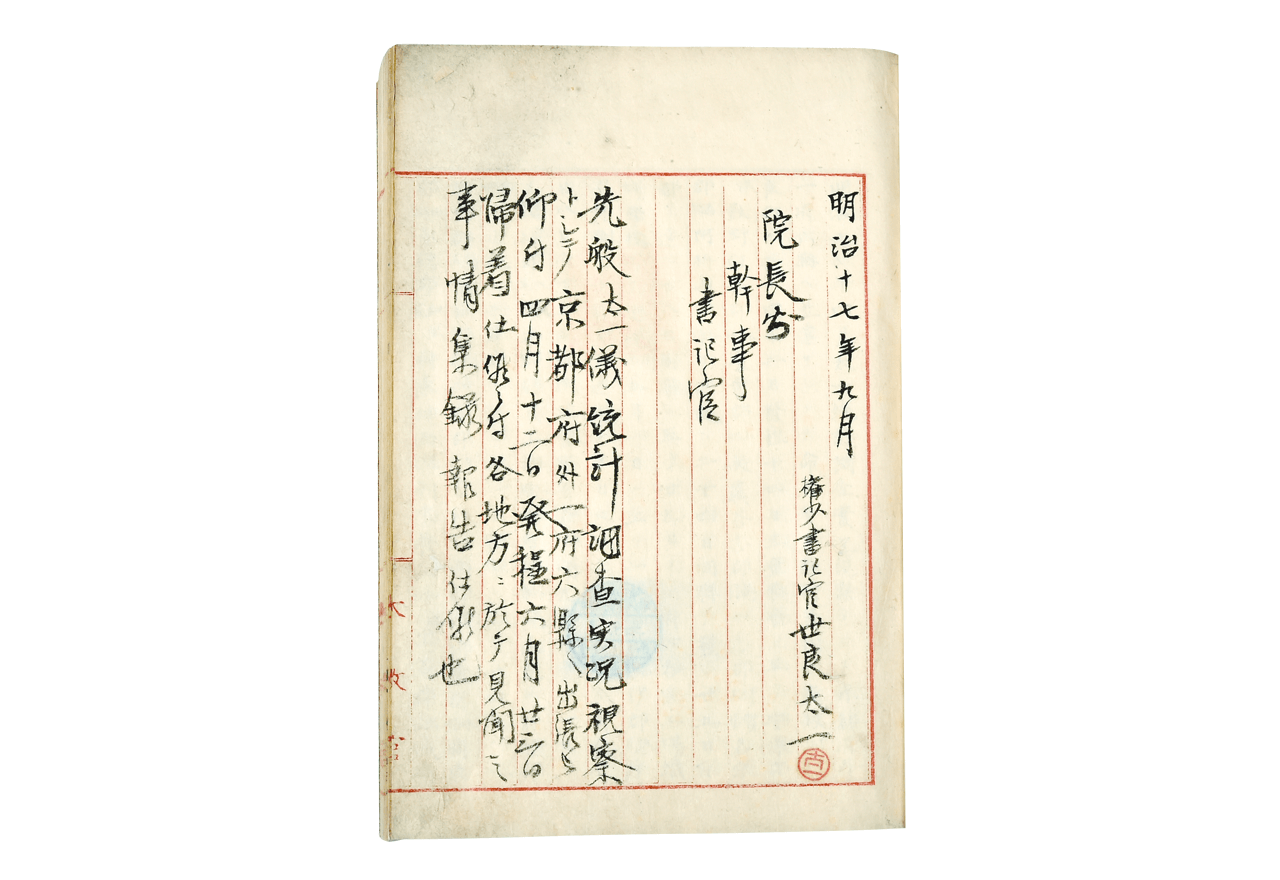 明治十七年九月
権少書記官世良太一
院長
幹事
書記官
先般太一儀統計調査実况視察
トシテ京都府外一府六縣ヘ出張
仰付四月十二日発程六月廿三日
帰着仕候ニ付各地方ニ於テ見聞之
事情集録報告仕候也
太政官